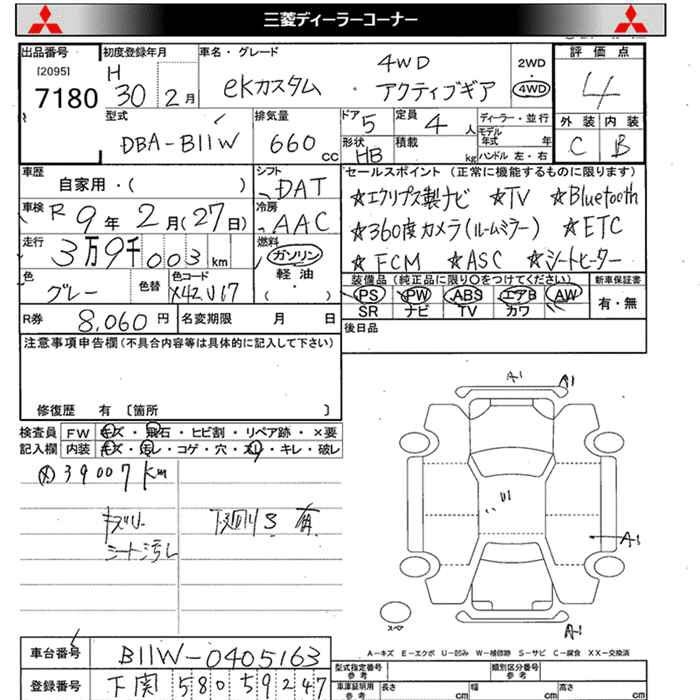 三菱ディーラーコーナー
出品番号 初度登録年月 車名・グレード 2WD 評価点
[2095] H 4WD
7180 30 2月 eKカスタム・アクティブギア 4WD 4
型式 排気量 ドア 5 定員 4人 ディーラー・並行 外装 内装
DBA-B11W 660cc 形状 HB 積載 kg モデル年式 年 C B
ハンドル 左・右
車歴 シフト セールスポイント(正常に機能するものに限ります)
自家用・( ) DAT ☆エクリプス製ナビ ☆TV ☆Bluetooth
車検 R9年2月(27日) 冷房 AAC ☆360度カメラ(ルームミラー) ☆ETC
走行 3万9千003km 燃料 ガソリン ☆FCM ☆ASC ☆シートヒーター
軽油
( )
色 グレー 色替 色コード X42U67 装備品(純正品に限り○をつけてください) 新車保証書
PS PW ABS エアB AW 有・無
SR ナビ TV カワ
R券 8,060円 名変期限 月 日 後日品
注意事項申告欄(不具合内容等は具体的に記入して下さい)
修復歴 有 〔箇所 〕
検査員 FW キズ・飛石・ヒビ割・リペア跡・×要
記入欄 内装 キズ・汚レ・コゲ・穴・スレ・キレ・破レ
39007km
下廻りS 有
シート汚レ
A1 A1
A1
A1
スペア
A-キズ E-エクボ U-凹み W-補修跡 S-サビ C-腐食 XX-交換済
車台番号 B11W-0405163 型式指定番号 参考 類別区分番号 参考
登録番号 下関 580 59247 車庫証明用 参考 長さ cm 幅 cm 高さ cm